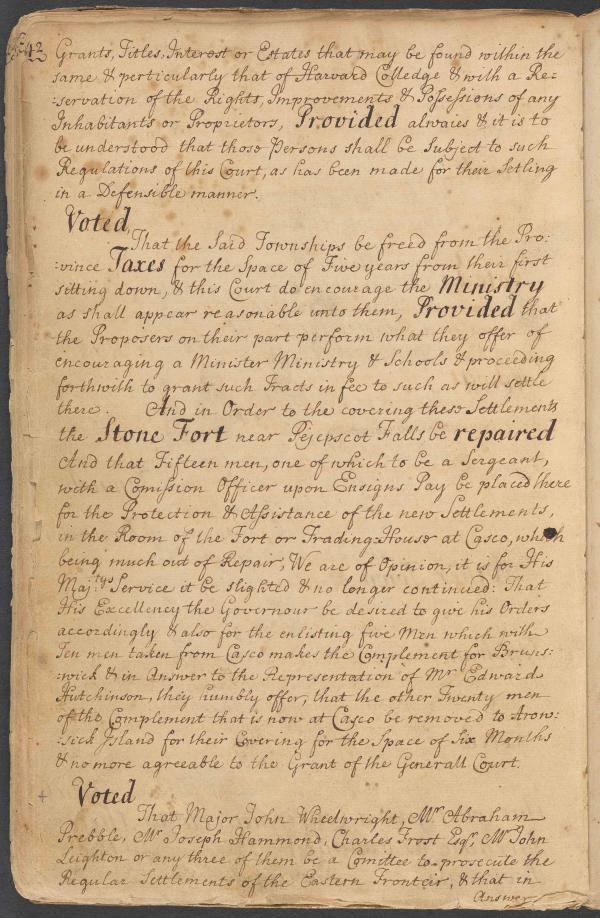 42
Grants, Titles, Interest or Estates that may be found within the
same & perticularly that of Harvard Colledge & with a Re=
:servation of the Rights, Improvements & Possessions of any
Inhabitants or Proprietors, Provided alwaies & it is to
be understood that those Persons shall be Subject to such
Regulations of this Court, as has been made for their Setling
in a Defensible manner.
Voted,
That the Said Townships be freed from the Pro:
:vince Taxes for the Space of Five years from their first
sitting down, & this Court do encourage the Ministry
as shall appear reasonable unto them, Provided that
the Proposers on their part perform what they offer of
encouraging a Minister Ministry & Schools & proceeding
forthwith to grant such Tracts in fee to such as will settle
there. And in Order to the covering these Settlements
the Stone Fort near Pejepscot Falls be repaired
And that Fifteen men, one of which to be a Sergeant,
with a Comission Officer upon Ensigns Pay be placed there
for the Protection & Assistance of the new Settlements,
in the Room of the Fort or Trading House at Casco, which
being much out of Repair, We are of Opinion, it is for His
Maj:tys Service it be slighted & no longer continued: That
His Excellency the Governour be desired to give his Orders
accordingly & also for the enlisting five Men which with
Ten men taken from Casco makes the Complement for Bruns:
:wick & in Answer to the Representation of Mr Edward
Hutchinson, they humbly offer, that the other Twenty men
of the Complement that is now at Casco be removed to Arow:
:sick Island for their Covering for the Space of Six Months
& no more agreeable to the Grant of the Generall Court.
Voted
That Major John Wheelwright, Mr Abraham
Prebble, Mr Joseph Hammond, Charles Frost Esqr, Mr John
Leighton or any three of them be a Comittee to prosecute the
Regular Settlements of the Eastern Fronteir, & that in
Answer